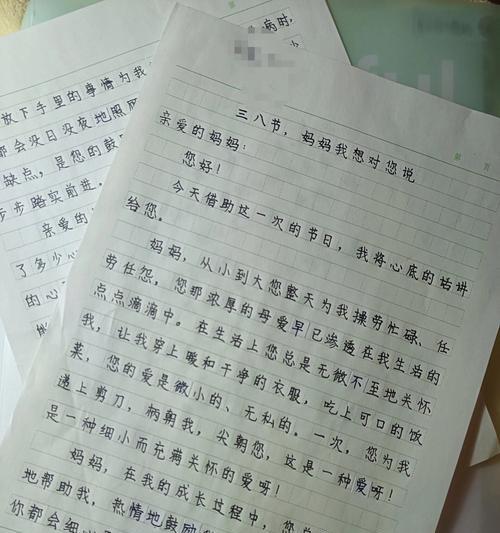 三八节，妈妈我想对您说
亲爱的妈妈：
您好！
今天借助这一次的节日，我将心底的话讲
给您。
妈妈，从小到大您整天为我操劳忙碌、任
劳任怨。您那浓厚的母爱早已渗透在我生活的
点点滴滴中。在生活上您总是无微不至地关怀
我，让我穿上暖和干净的衣服，吃上可口的饭
菜，您的爱是微小的、无私的。一次，您为我
递上剪刀，柄朝我，尖朝您，这是一种爱呀！
是一种细小而充满关怀的爱呀！
妈妈，在我的成长过程中，您总
地帮助我，热情地鼓励
你都会细
病时，
放下手里的事情为我
都会没日没夜地照顾
缺点，是您的鼓
步步踏实前进。
亲爱的
了多少心
的心